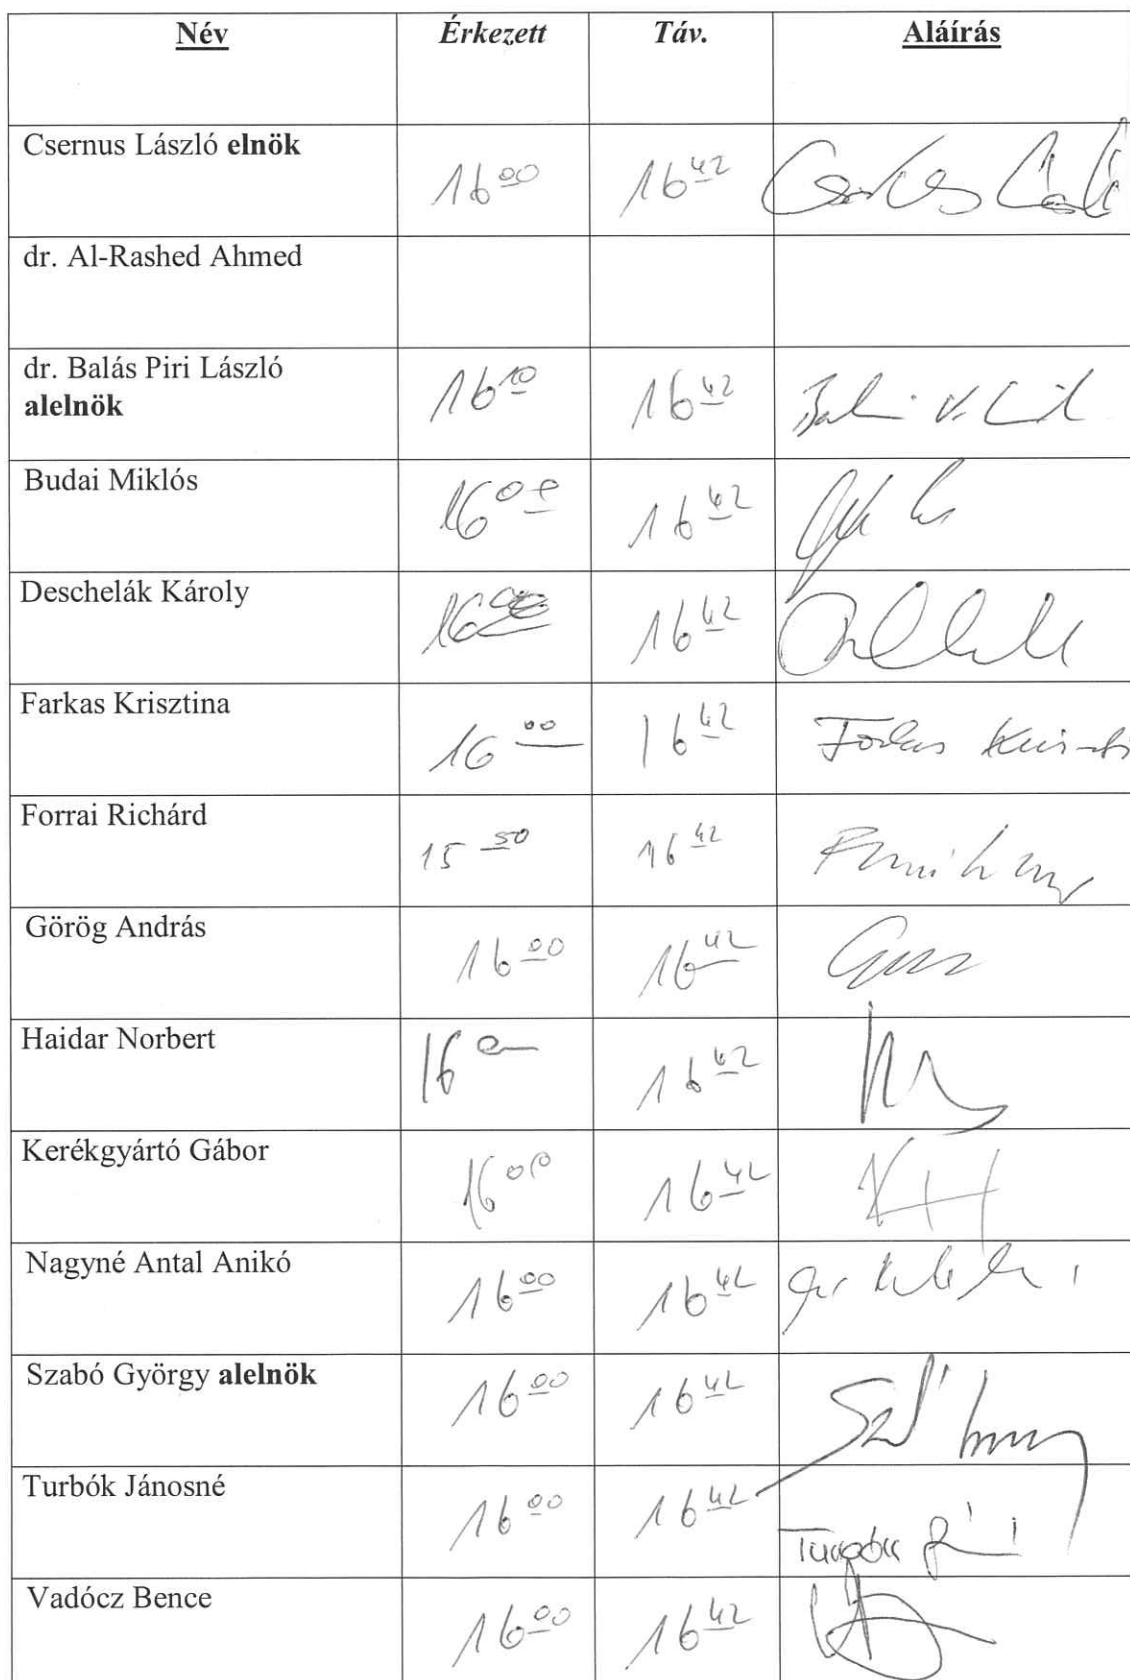 Név Érkezett Táv. Aláírás
Csernus László elnök
16 00 16 42
dr. Al-Rashed Ahmed
dr. Balás Piri László
alelnök
16 10 16 42
Budai Miklós
16 00 16 42
Deschelák Károly
16 00 16 42
Farkas Krisztina
16 00 16 42 Farkas
Forrai Richárd
15 50 16 42
Görög András
16 00 16 42
Haidar Norbert
16 16 42
Kerékgyártó Gábor
16 00 16 42
Nagyné Antal Anikó
16 00 16 42
Szabó György alelnök
16 00 16 42
Turbók Jánosné
16 00 16 42
Vadócz Bence
16 00 16 42